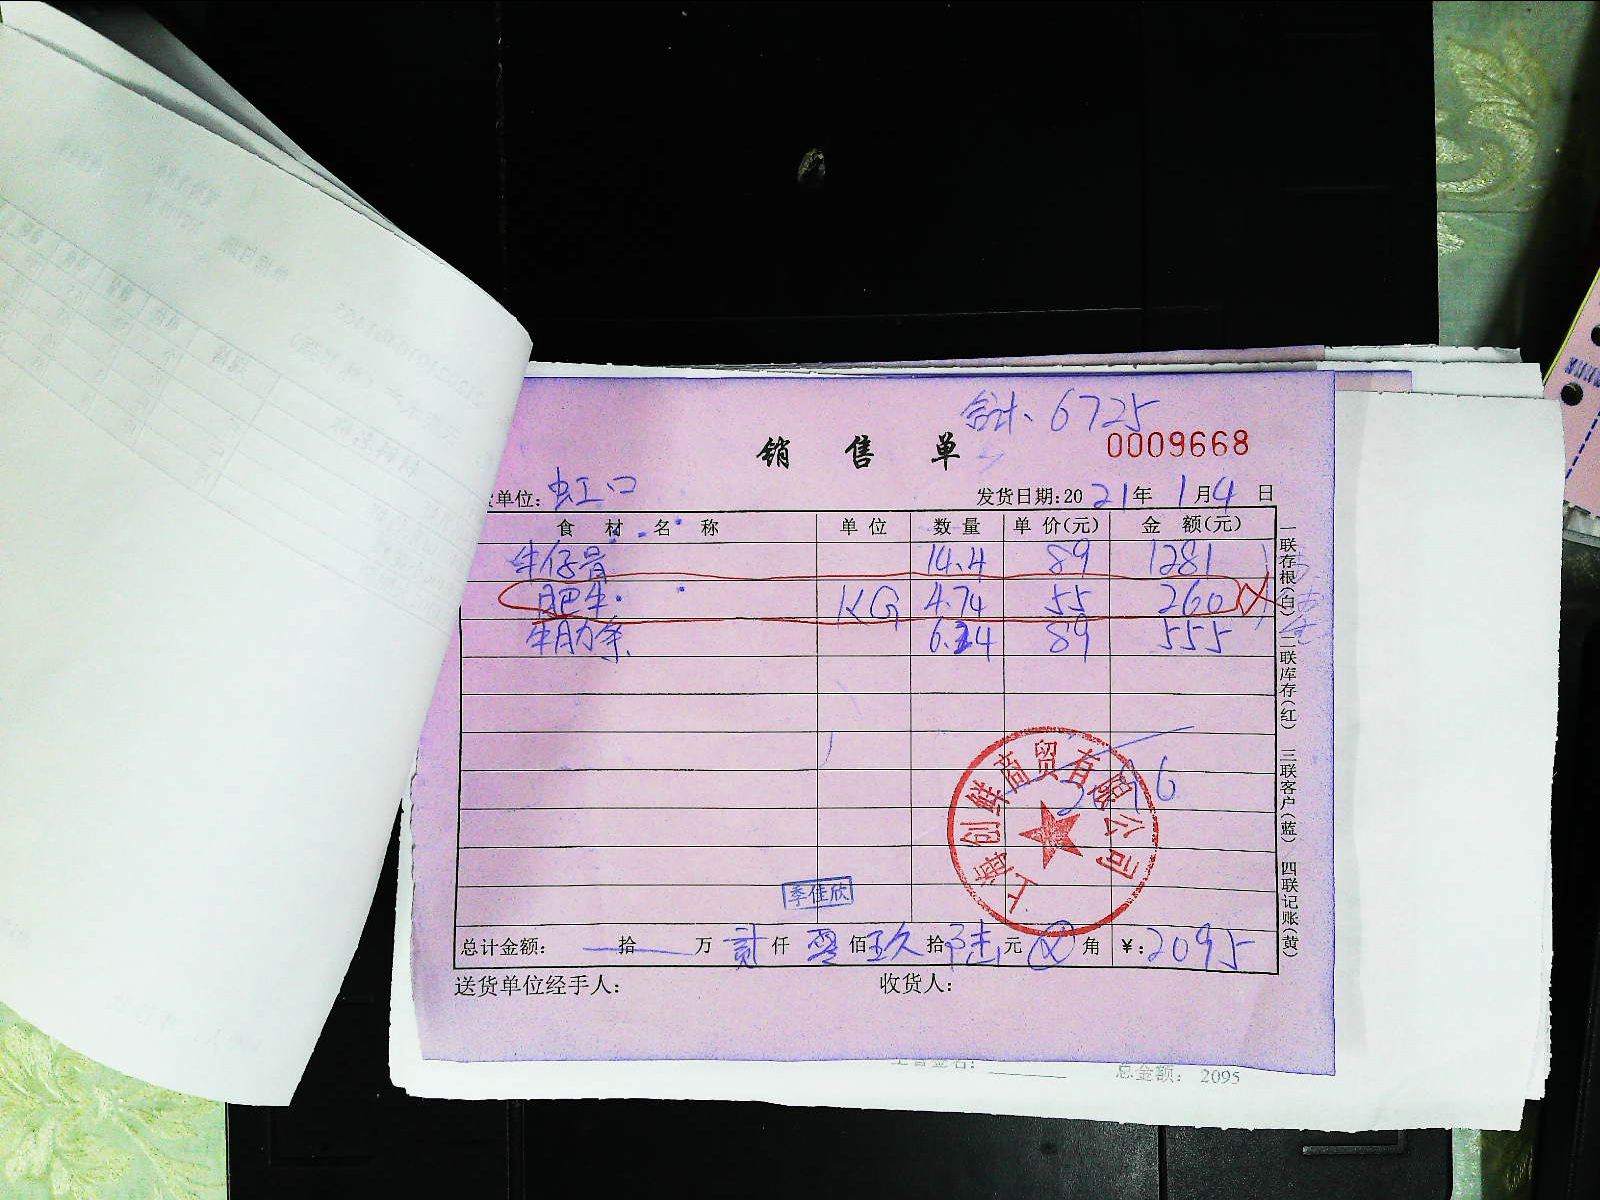 合计、6725
销售单 0009668
单位: 虹口 发货日期:2021年1月4日
食材名称 单位 数量 单价(元) 金额(元)
牛仔骨 14.4 89 1281
肥牛 KG 4.74 55 260
牛肋条 6.24 89 555
一联存根(白) 二联库存(红) 三联客户(蓝) 四联记账(黄)
上海创鲜商贸有限公司
季佳欣
总计金额: 拾 万 贰仟 零佰 玖拾 元 角 ¥:2095
送货单位经手人: 收货人:
总金额: 2095